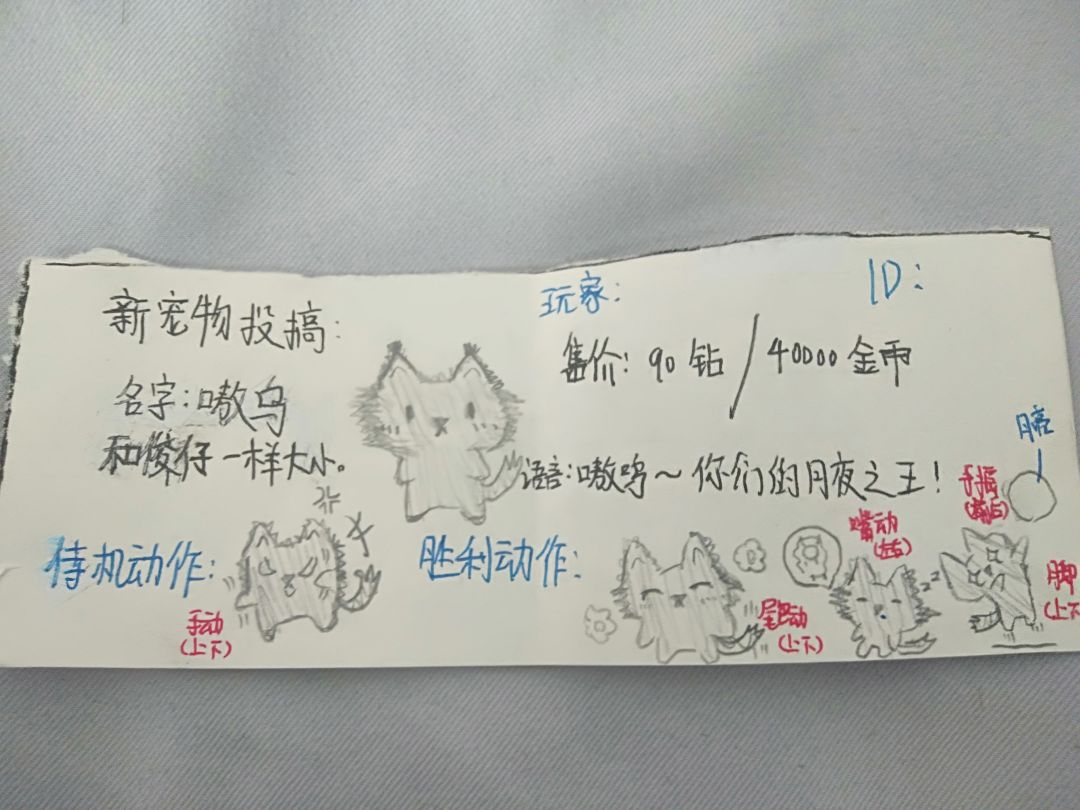 新宠物投搞:
玩家:
ID:
售价:90钻/40000金币
名字:嗷呜
和傻仔一样大小。
语言:嗷呜~你们的月夜之王!
待机动作:
手动
(上下)
胜利动作:
尾动
(上下)
嘴动
(左右)
手摇
脚
(上下